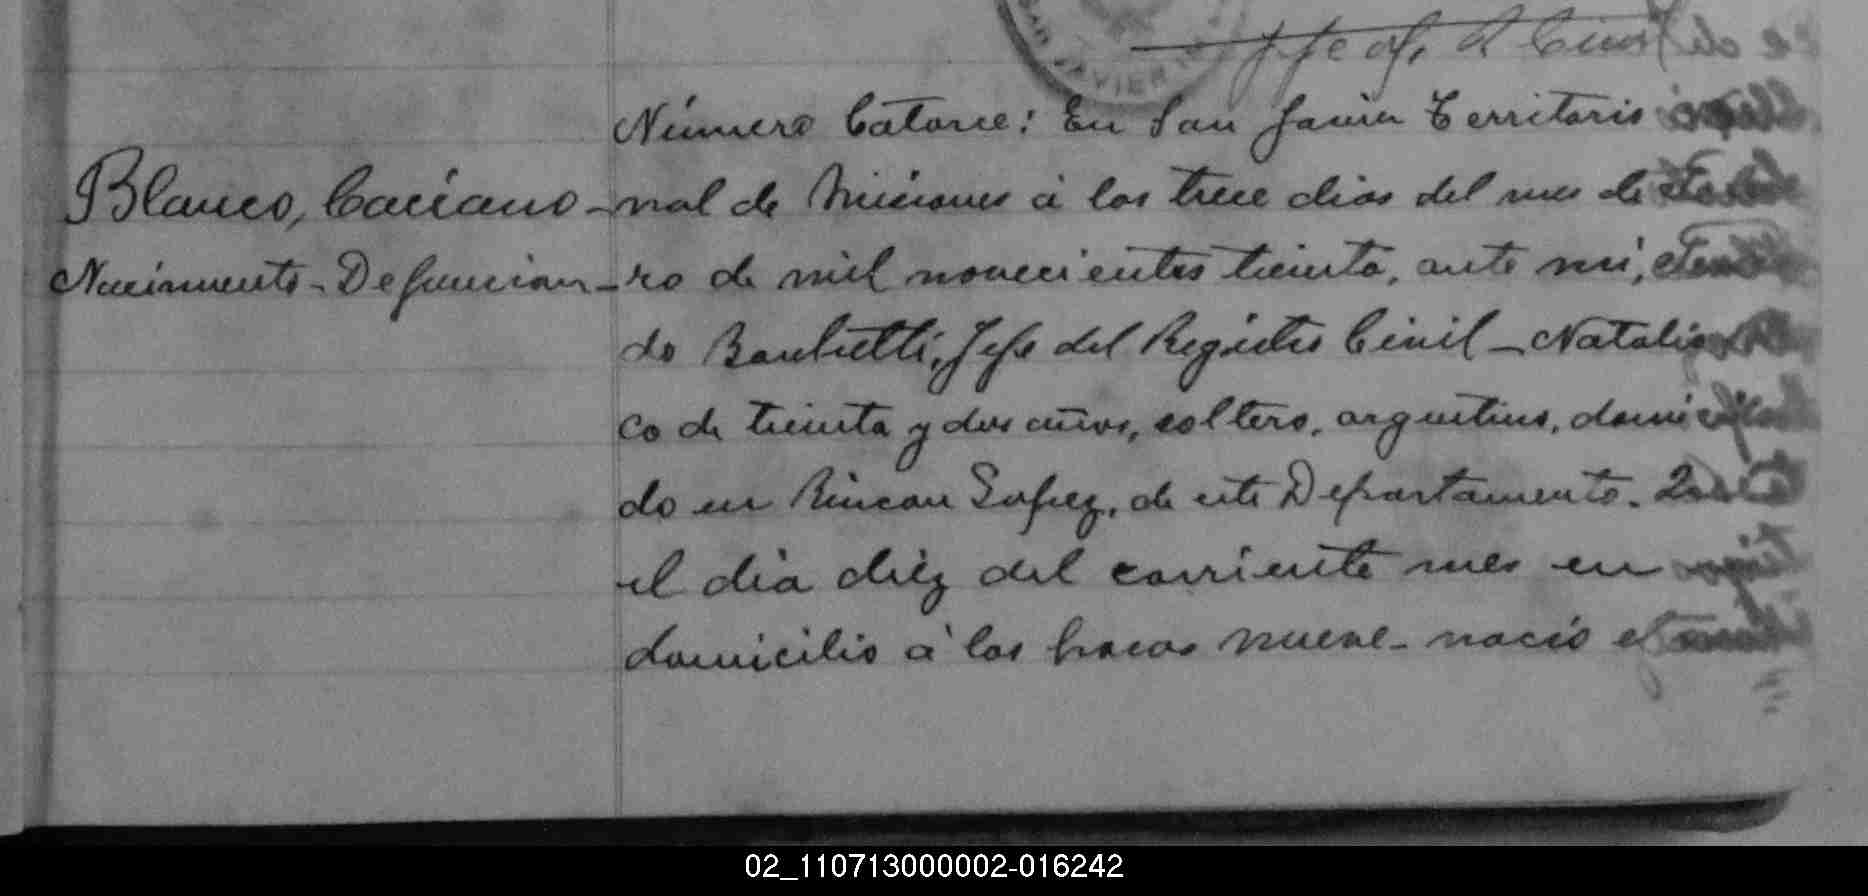 SAN JAVIER
Jefe of. R. Civil
Número Catorce: En San Javier Territorio
Blanco, Caciano
nal de Misiones á los trece dias del mes de
Nacimiento - Defuncion
ro de mil novecientos treinta, ante mi,
do Barbretti, Jefe del Registro Civil - Natalio
co de treinta y dos años, soltero, argentino, domicilia
do en Rincon Lopez, de este Departamento.
el dia diez del corriente mes en
domicilio á las horas nueve - nació el
02_110713000002-016242